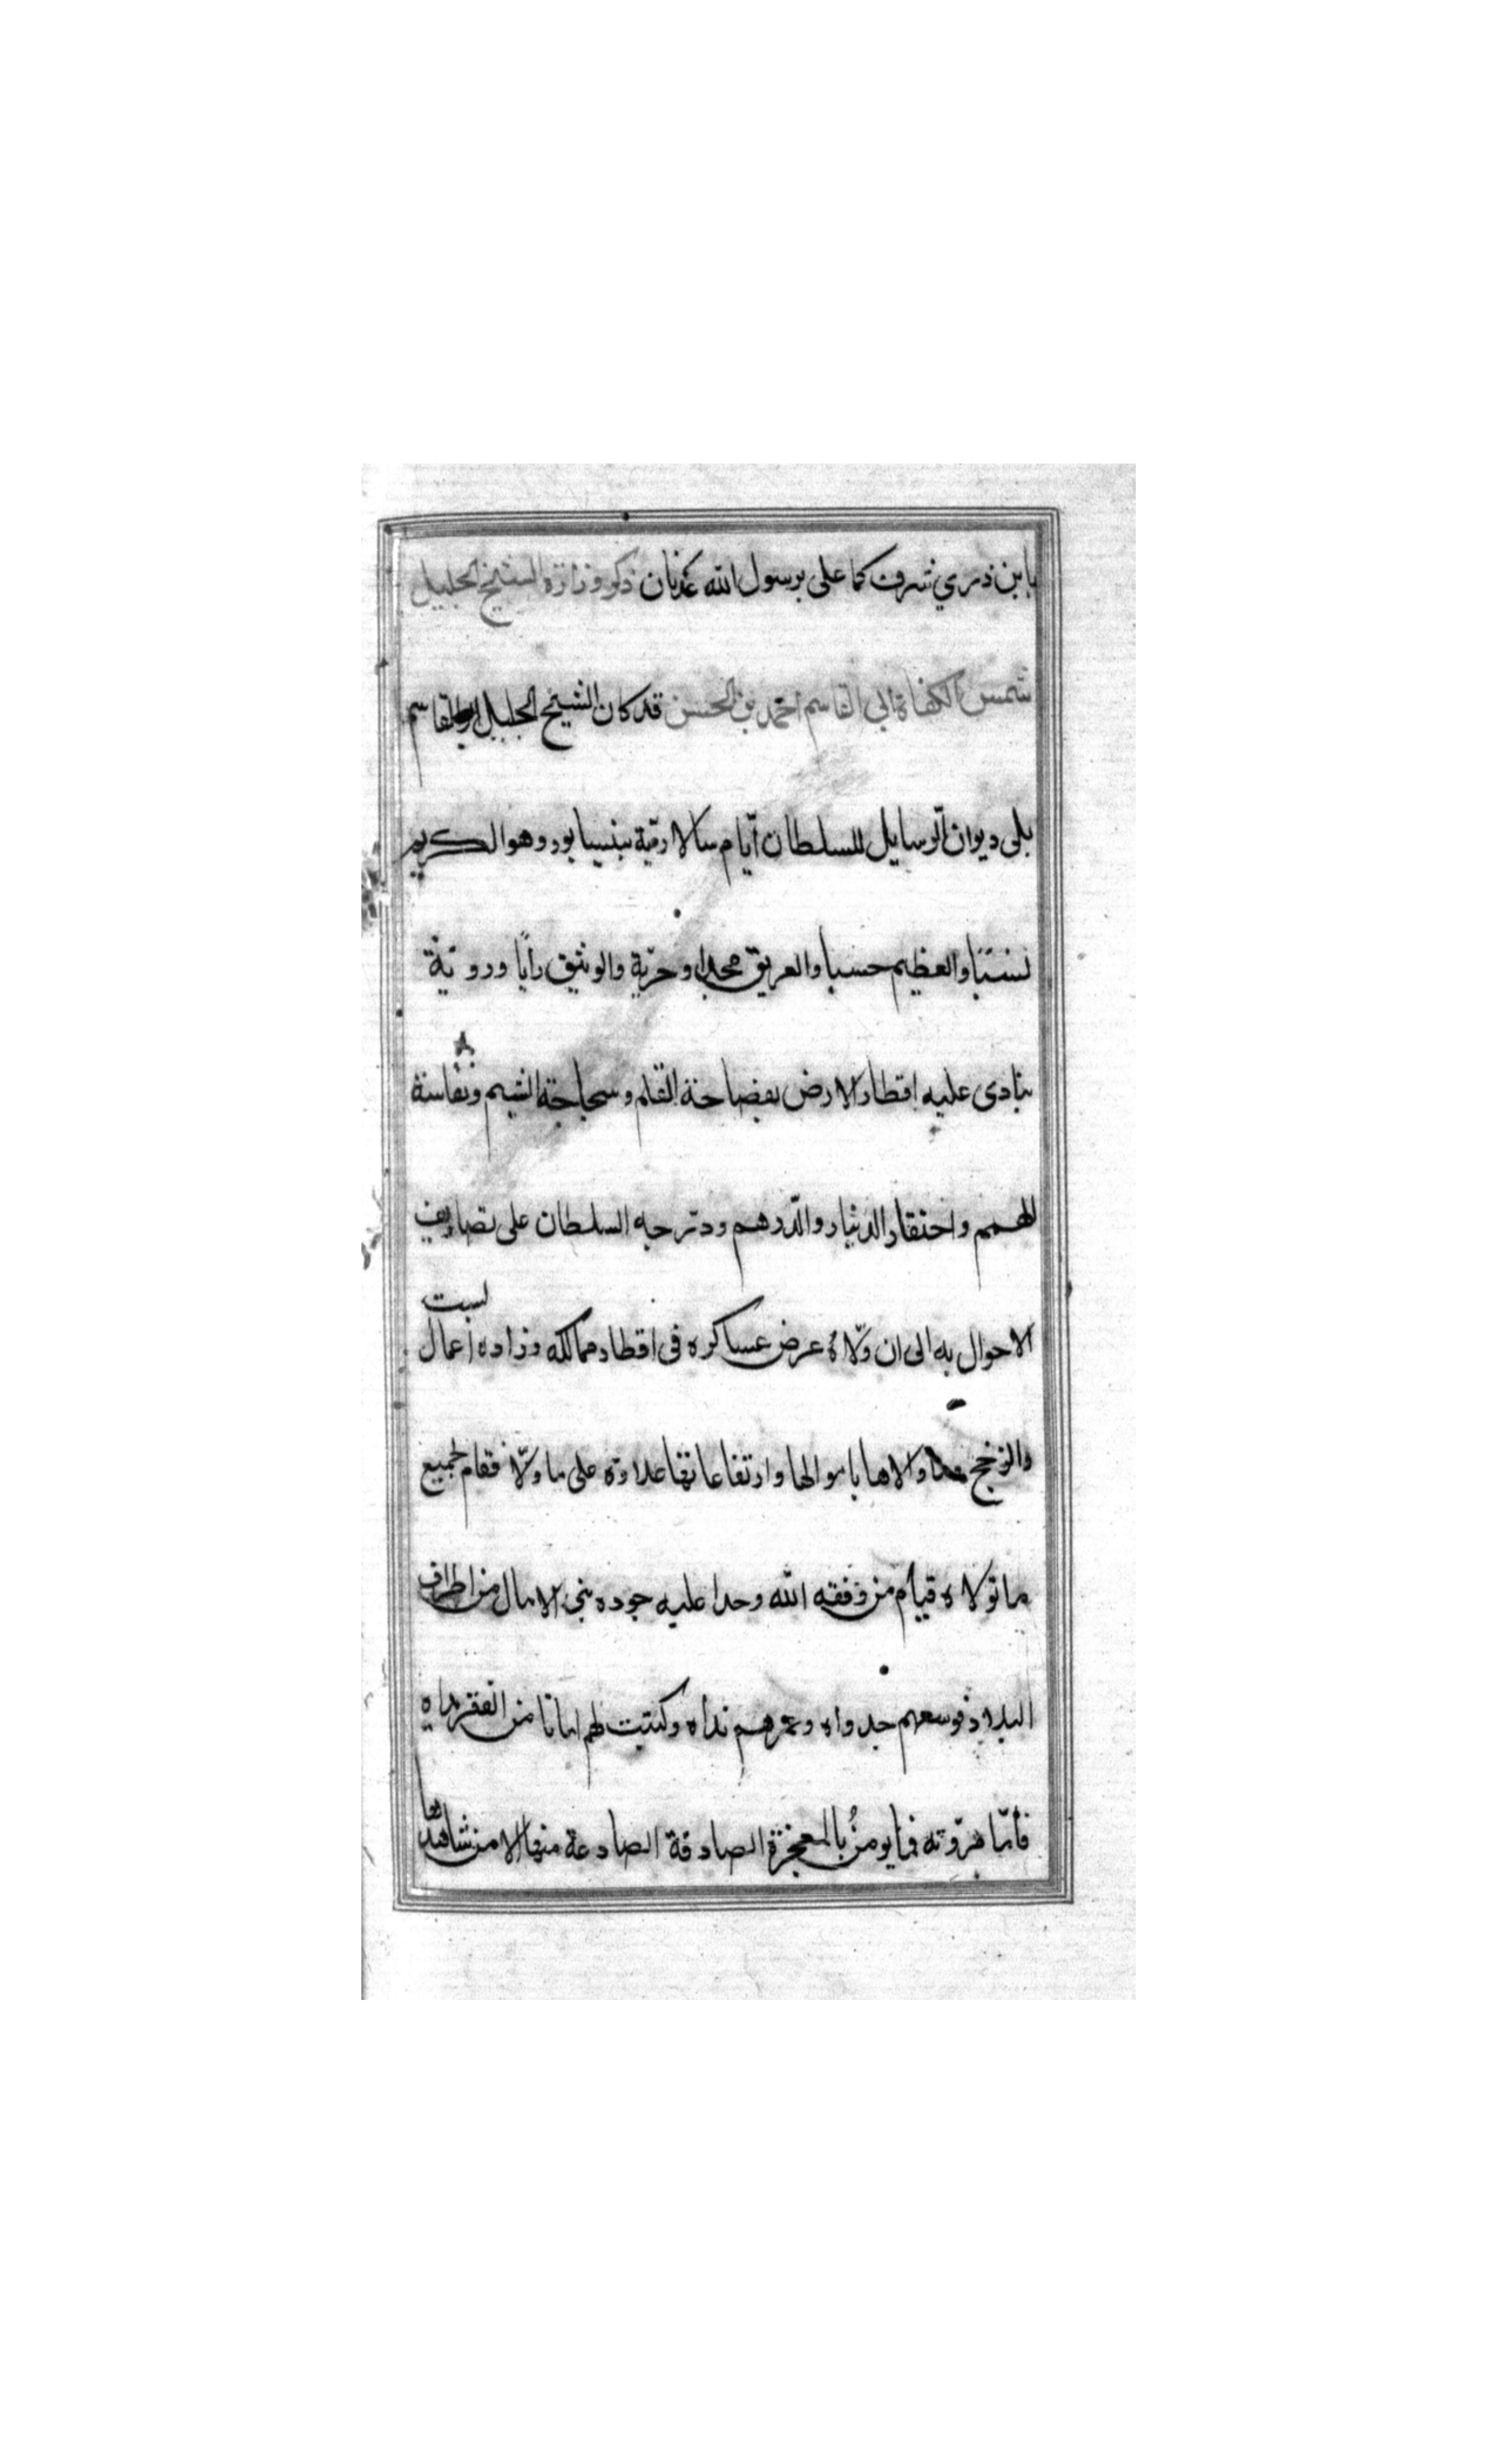 بابن ذري شرف كما على برسول الله عدنان ذكر وزارة الشيخ الجليل
شمس الكفاة ابي القاسم احمد بن الحسن قد كان الشيخ الجليل ابو القاسم
يلى ديوان الرسايل للسلطان ايّام سالارتية بنيسابور وهو الكريم
نسبًا والعظيم حسبا والعريق مجدا وحرّية والوثيق رأيا وروّية
ينادى عليه اقطار الارض بفصاحة القلم وسجاحة الشيم ونفاسة
الهمم واحتقار الدينار والدّرهم ودترجبه السلطان على تصاريف
الاحوال به الى ان ولّاه عرض عساكره فى اقطار ممالكه وزاده اعمال لبست
والرخج وما والاها باموالها وارتفاعاتها علاوة على ما ولّاه فقام لجميع
ما تولاه قيام من وفقه الله وحدا عليه جوده بنى الامال من اطراف
البلاد فوسعهم جدواه وغمرهم نداه وكتبت لهم امانا من الفقر يداه
فأمّا مروّته فما يؤمنُ بالمعجزة الصادقة الصادعة منها الا من شاهدها